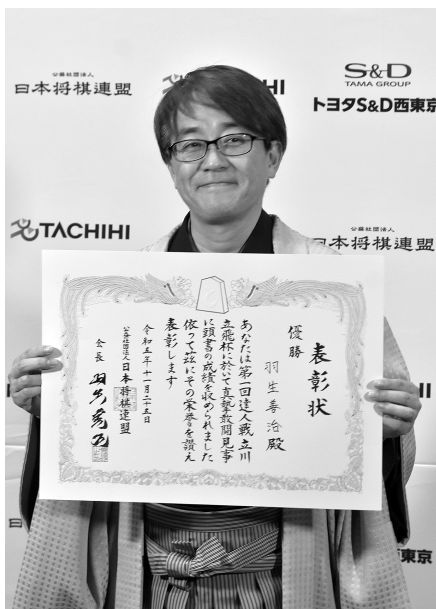 公益社団法人
日本将棋連盟
HI
S&D
TAMA GROUP
トヨタS&D西東京
TACHIHI
公益社団法人
日本将棋連盟
表彰状
優勝
羽生善治殿
あなたは第一回達人戦立川
立飛杯に於いて真摯敢闘見事
に頭書の成績を収められました
依って茲にその栄誉を讃え
表彰します
令和五年十一月二十五日
公益社団法人日本将棋連盟
会長
西東京